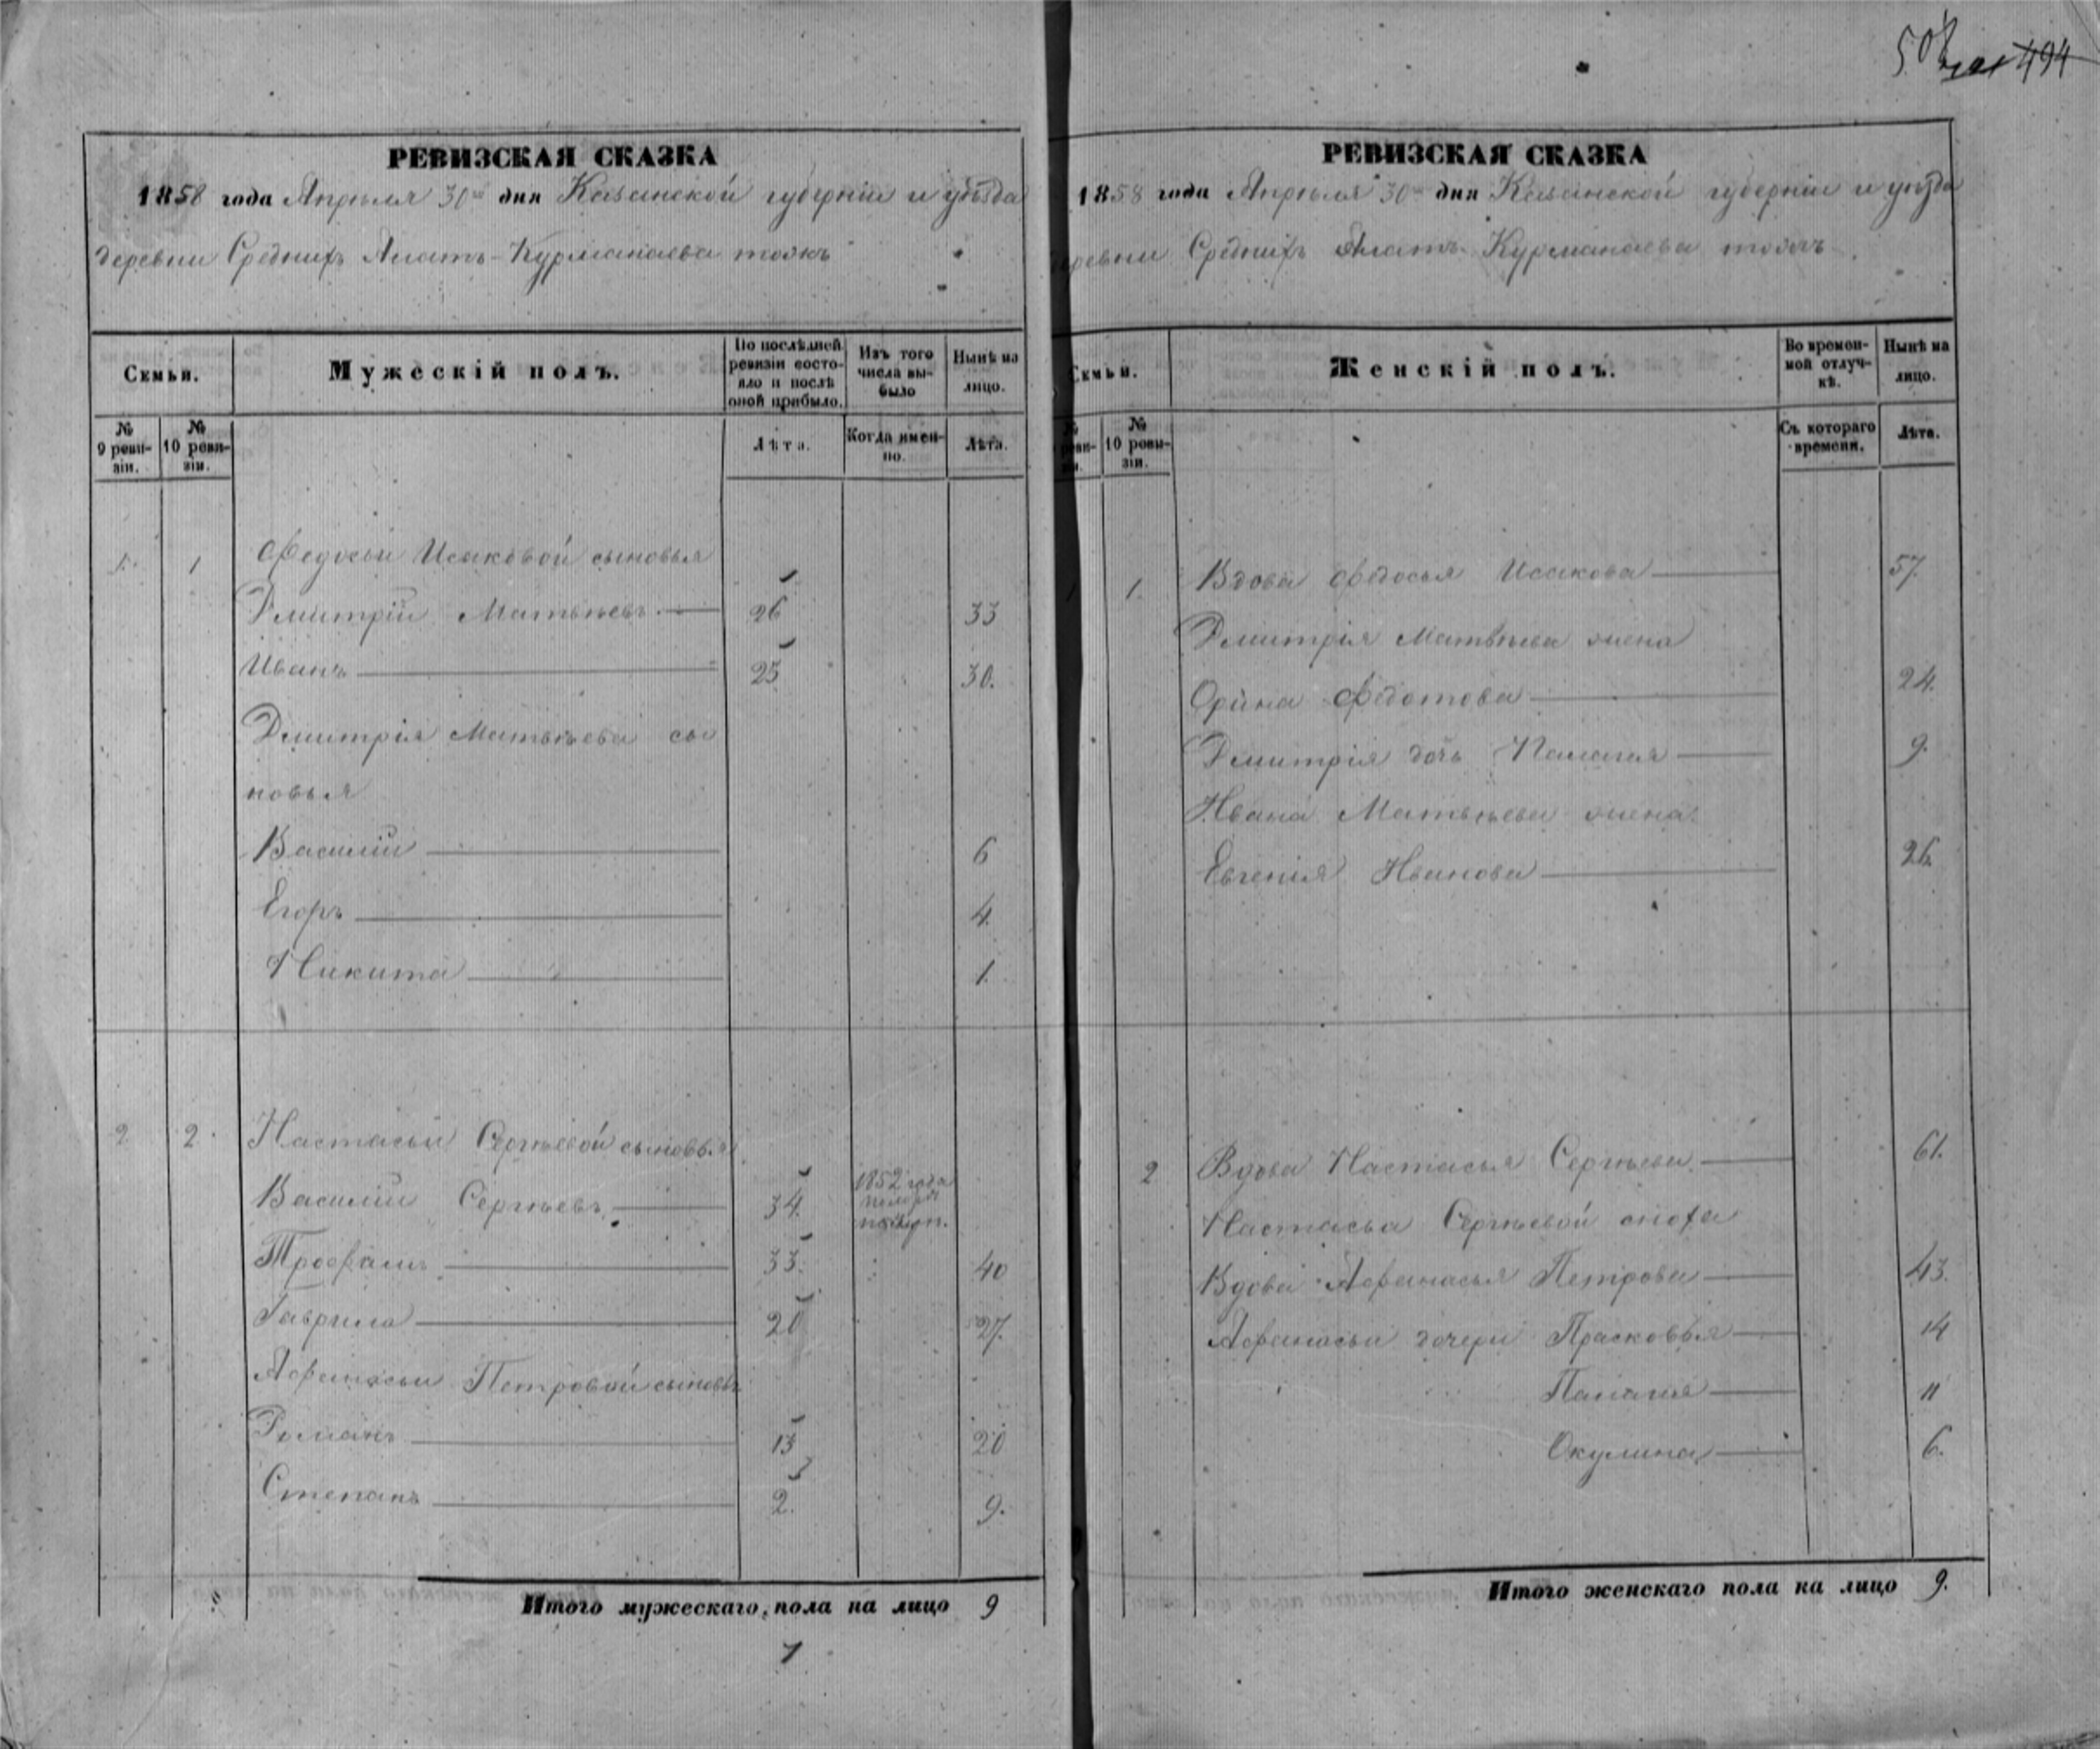 494
РЕВИЗСКАЯ СКАЗКА
1858 года Апрѣля 30го дня Казанской губерніи и уѣзда
деревни Среднихъ Алатъ-Курманаева тожъ
Семьи.
Мужескій полъ.
По послѣдней ревизіи состояло и послѣ оной прибыло.
Изъ того числа выбыло
Нынѣ на лицо.
№ 9 ревизіи.
№ 10 ревизіи.
Лѣта.
Когда именно.
Лѣта.
1. 1 Федосьи Исаковой сыновья
Дмитрій Матвѣевъ 26 33
Иванъ 23 30.
Дмитрія Матвѣева сы
новья
Василій 6
Егоръ 4.
Никита 1.
2 2. Настасьи Сергѣевой сыновья
Василій Сергѣевъ 34. 1852 года
Трофимъ 33. 40
Гаврила 20 27.
Афанасьи Петровой сыновья
Романъ 13 20
Степанъ 2. 9.
Итого мужескаго пола на лицо 9
РЕВИЗСКАЯ СКАЗКА
1858 года Апрѣля 30го дня Казанской губерніи и уѣзда
деревни Среднихъ Алатъ-Курманаева тожъ
Семьи.
Женскій полъ.
Во временной отлучкѣ.
Нынѣ на лицо.
№ 10 ревизіи.
Съ котораго времени.
Лѣта.
1 1. Вдова Федосья Исакова 57.
Дмитрія Матвѣева жена
Орина Федотова 24.
Дмитрія дочь Палагея 9.
Ивана Матвѣева жена
Евгенія Иванова 26.
2 Вдова Настасья Сергѣева 61.
Настасьи Сергѣевой сноха
Вдова Афанасья Петрова 43.
Афанасьи дочери Прасковья 14
Палагея 11
Окулина 6.
Итого женскаго пола на лицо 9.